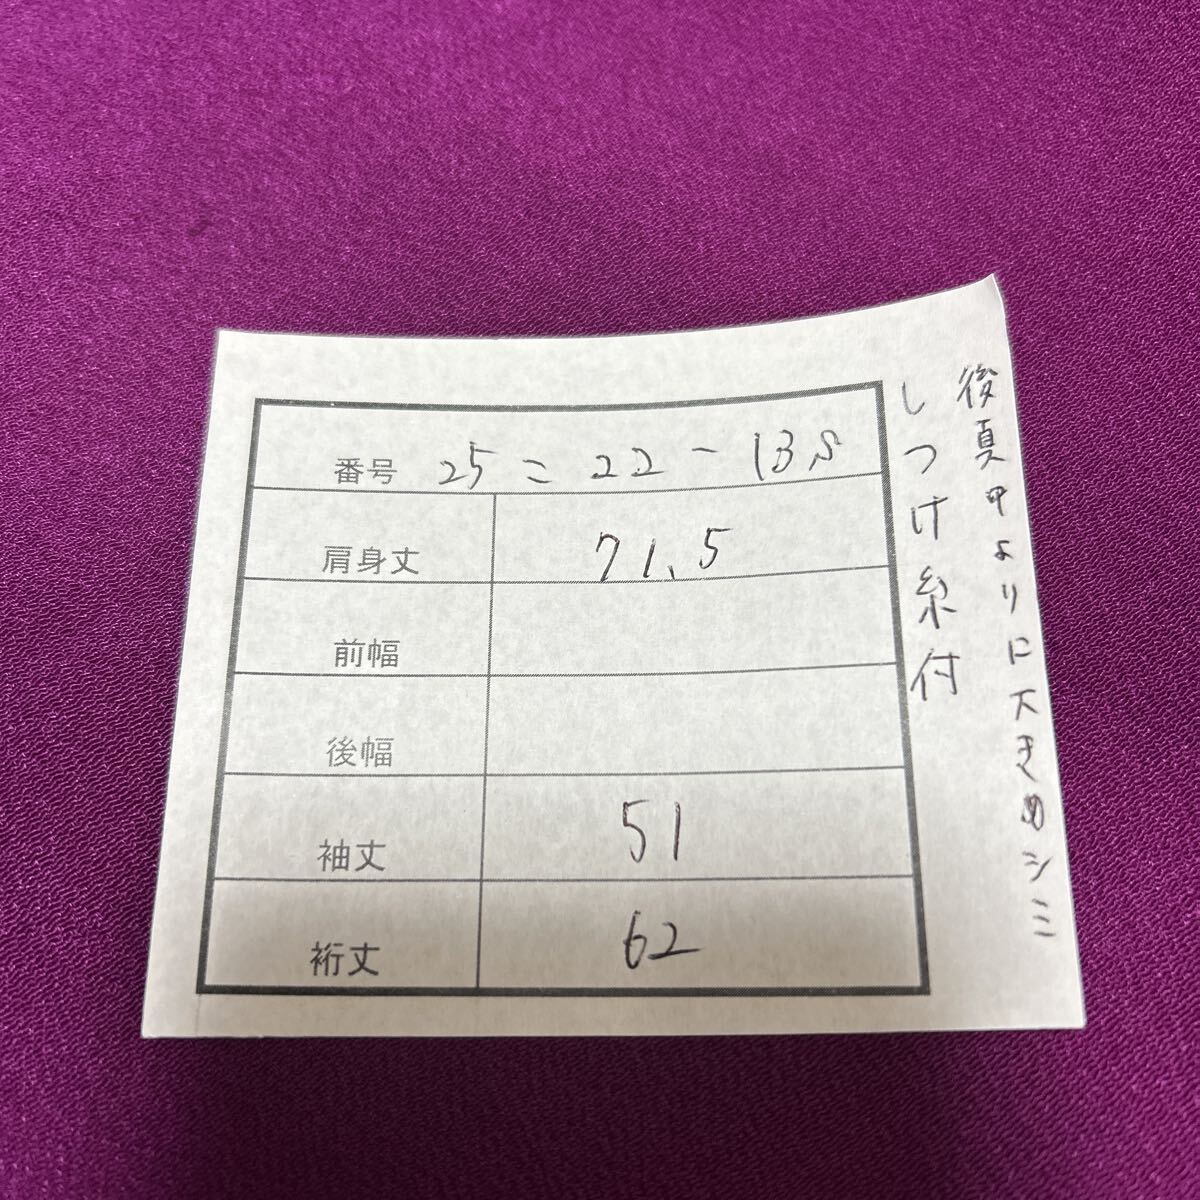 番号 25ニ22-13S
肩身丈 71.5
前幅
後幅
袖丈 51
裄丈 62
後真中よりに大きめシミ
しつけ糸付